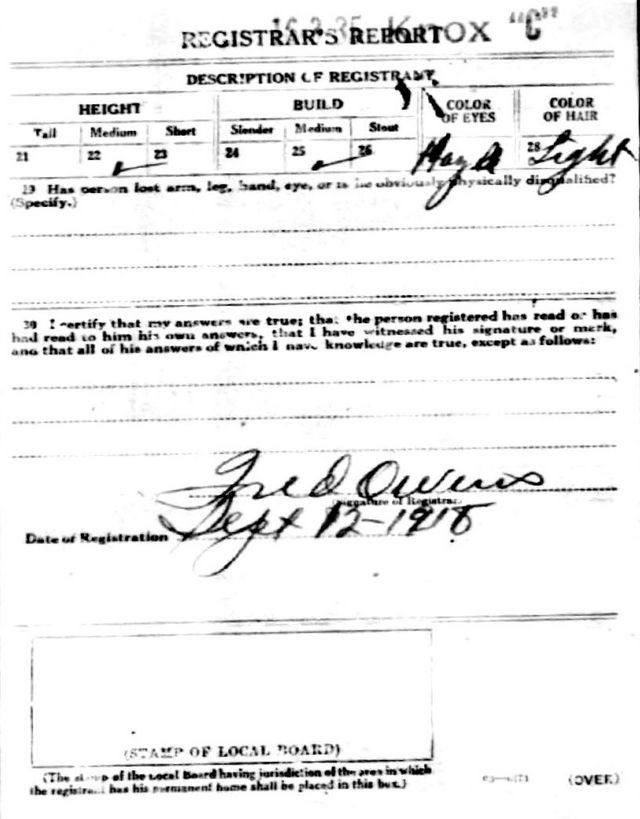 16 3 35 Knox "C"
REGISTRAR'S REPORT
DESCRIPTION OF REGISTRANT
HEIGHT BUILD COLOR OF EYES COLOR OF HAIR
Tall Medium Short Slender Medium Stout
21 22 ✓ 23 24 25 ✓ 26 Hazel 28 Light
29 Has person lost arm, leg, hand, eye, or is he obviously physically disqualified?
(Specify.)
30 I certify that my answers are true; that the person registered has read or has
had read to him his own answers, that I have witnessed his signature or mark,
and that all of his answers of which I have knowledge are true, except as follows:
Fred Owens
(Signature of Registrar)
Date of Registration Sept 12-1918
(STAMP OF LOCAL BOARD)
(The stamp of the Local Board having jurisdiction of the area in which
the registrant has his permanent home shall be placed in this box.)
(OVER)